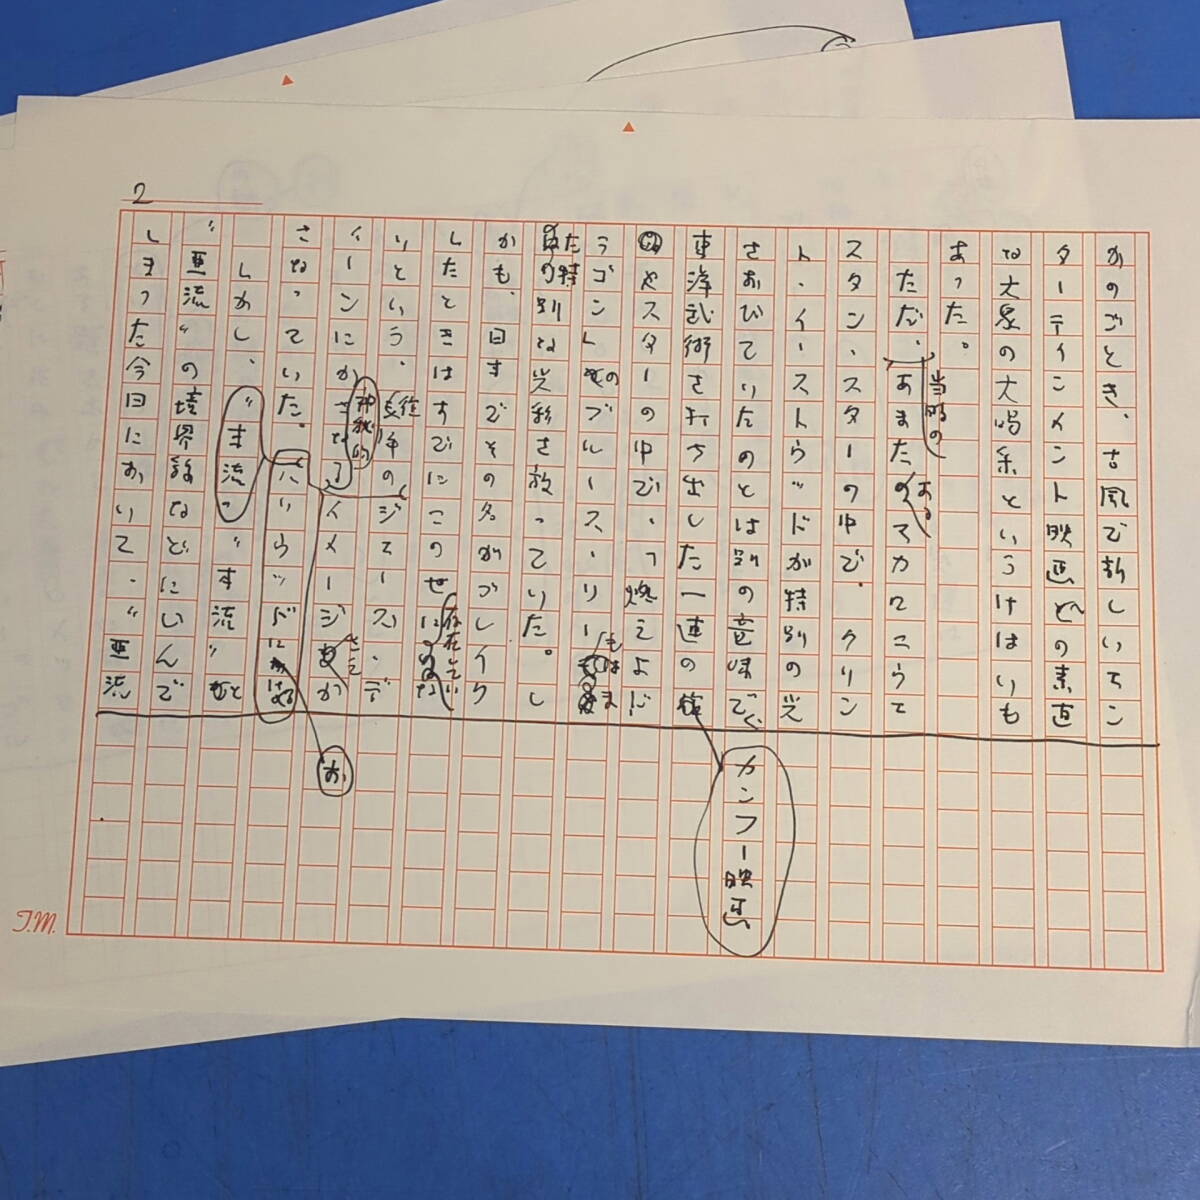 2
かのごとき、古風で新しいエン
ターテインメント映画との素直
な大衆の大喝采というけはいも
あった。
ただ、あまたのマカロニウエ
当時の
ある
スタン・スターの中で、クリン
ト・イーストウッドが特別の光
をおびていたのとは別の意味で、
東洋武術を打ち出した一連の
カンフー映画
スターの中で、「燃えよド
ラゴン」のブルース・リーはま
た特別な光彩を放っていた。し
かも、日本でその名がブレイク
したときはすでにこの世に
存在してい
ないという、
ジェームス・デ
ィーンにかさなる
神秘的
イメージ
さえか
さなっていた。
ハリウッドにおける
お
しかし、〝主流〟〝本流〟と
〝亜流〟の境界線などにじんで
しまった今日において、〝亜流
T.M.